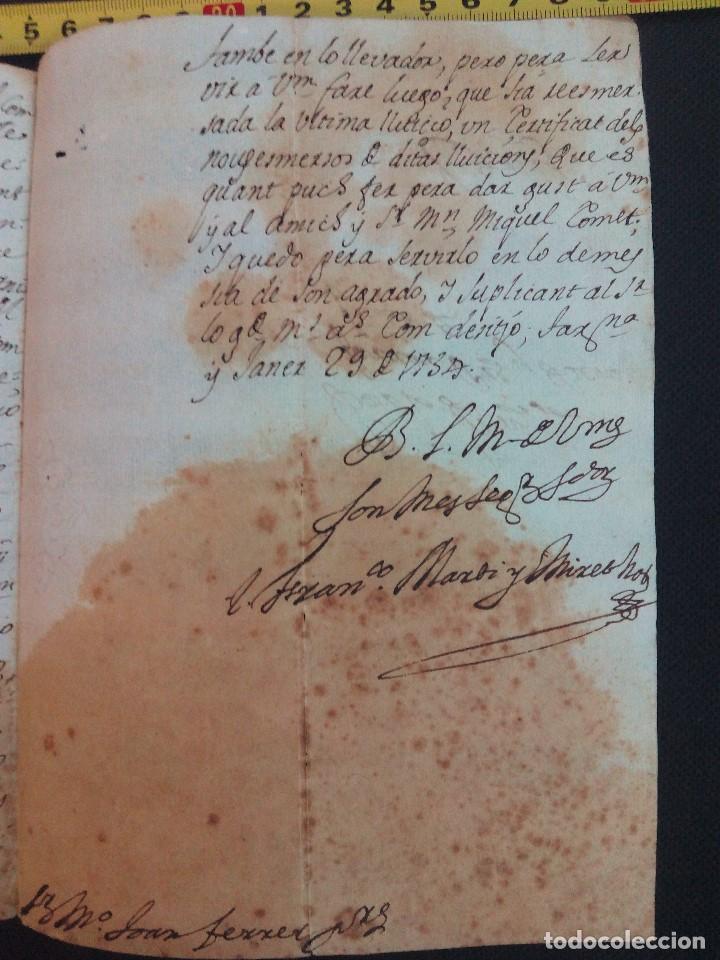 tambe en lo llevador, pero pera ser
vir á Vm fare luego, que sia reesmer
sada la ultima lluicio, un Certificat dels
de ditas lluicions, que es
quant puch fer pera dar gust á Vm
y al amich y Sr. Mn. Miquel Comet,
Y quedo pera servirlo en lo demes
sia de son agrado, y suplicant al Sr
lo gde ms. as. Com desitjo, Tarna
y Janer 29 de 1734.
B. L. M. de Vm
son mes segr Sdor
Franco. Marti y Miret Not
Sr Mo. Joan Ferrer pre
todocoleccion.net